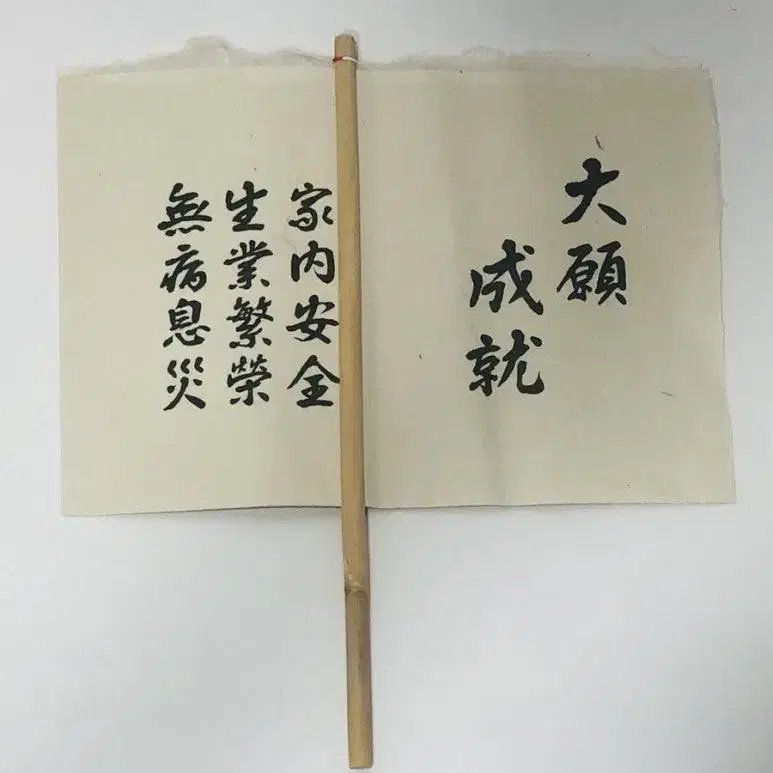 大願
成就
家内安全
生業繁榮
無病息災